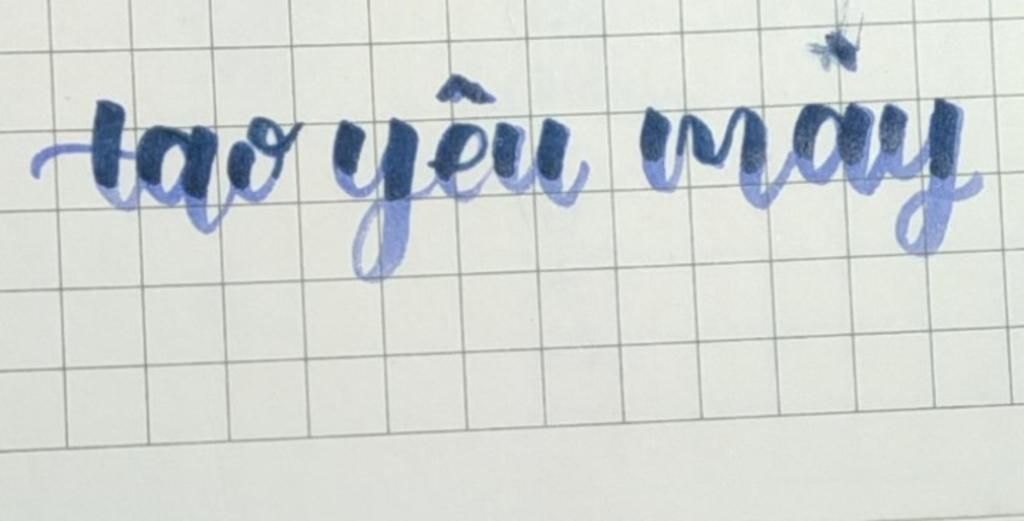 tao yêu mày